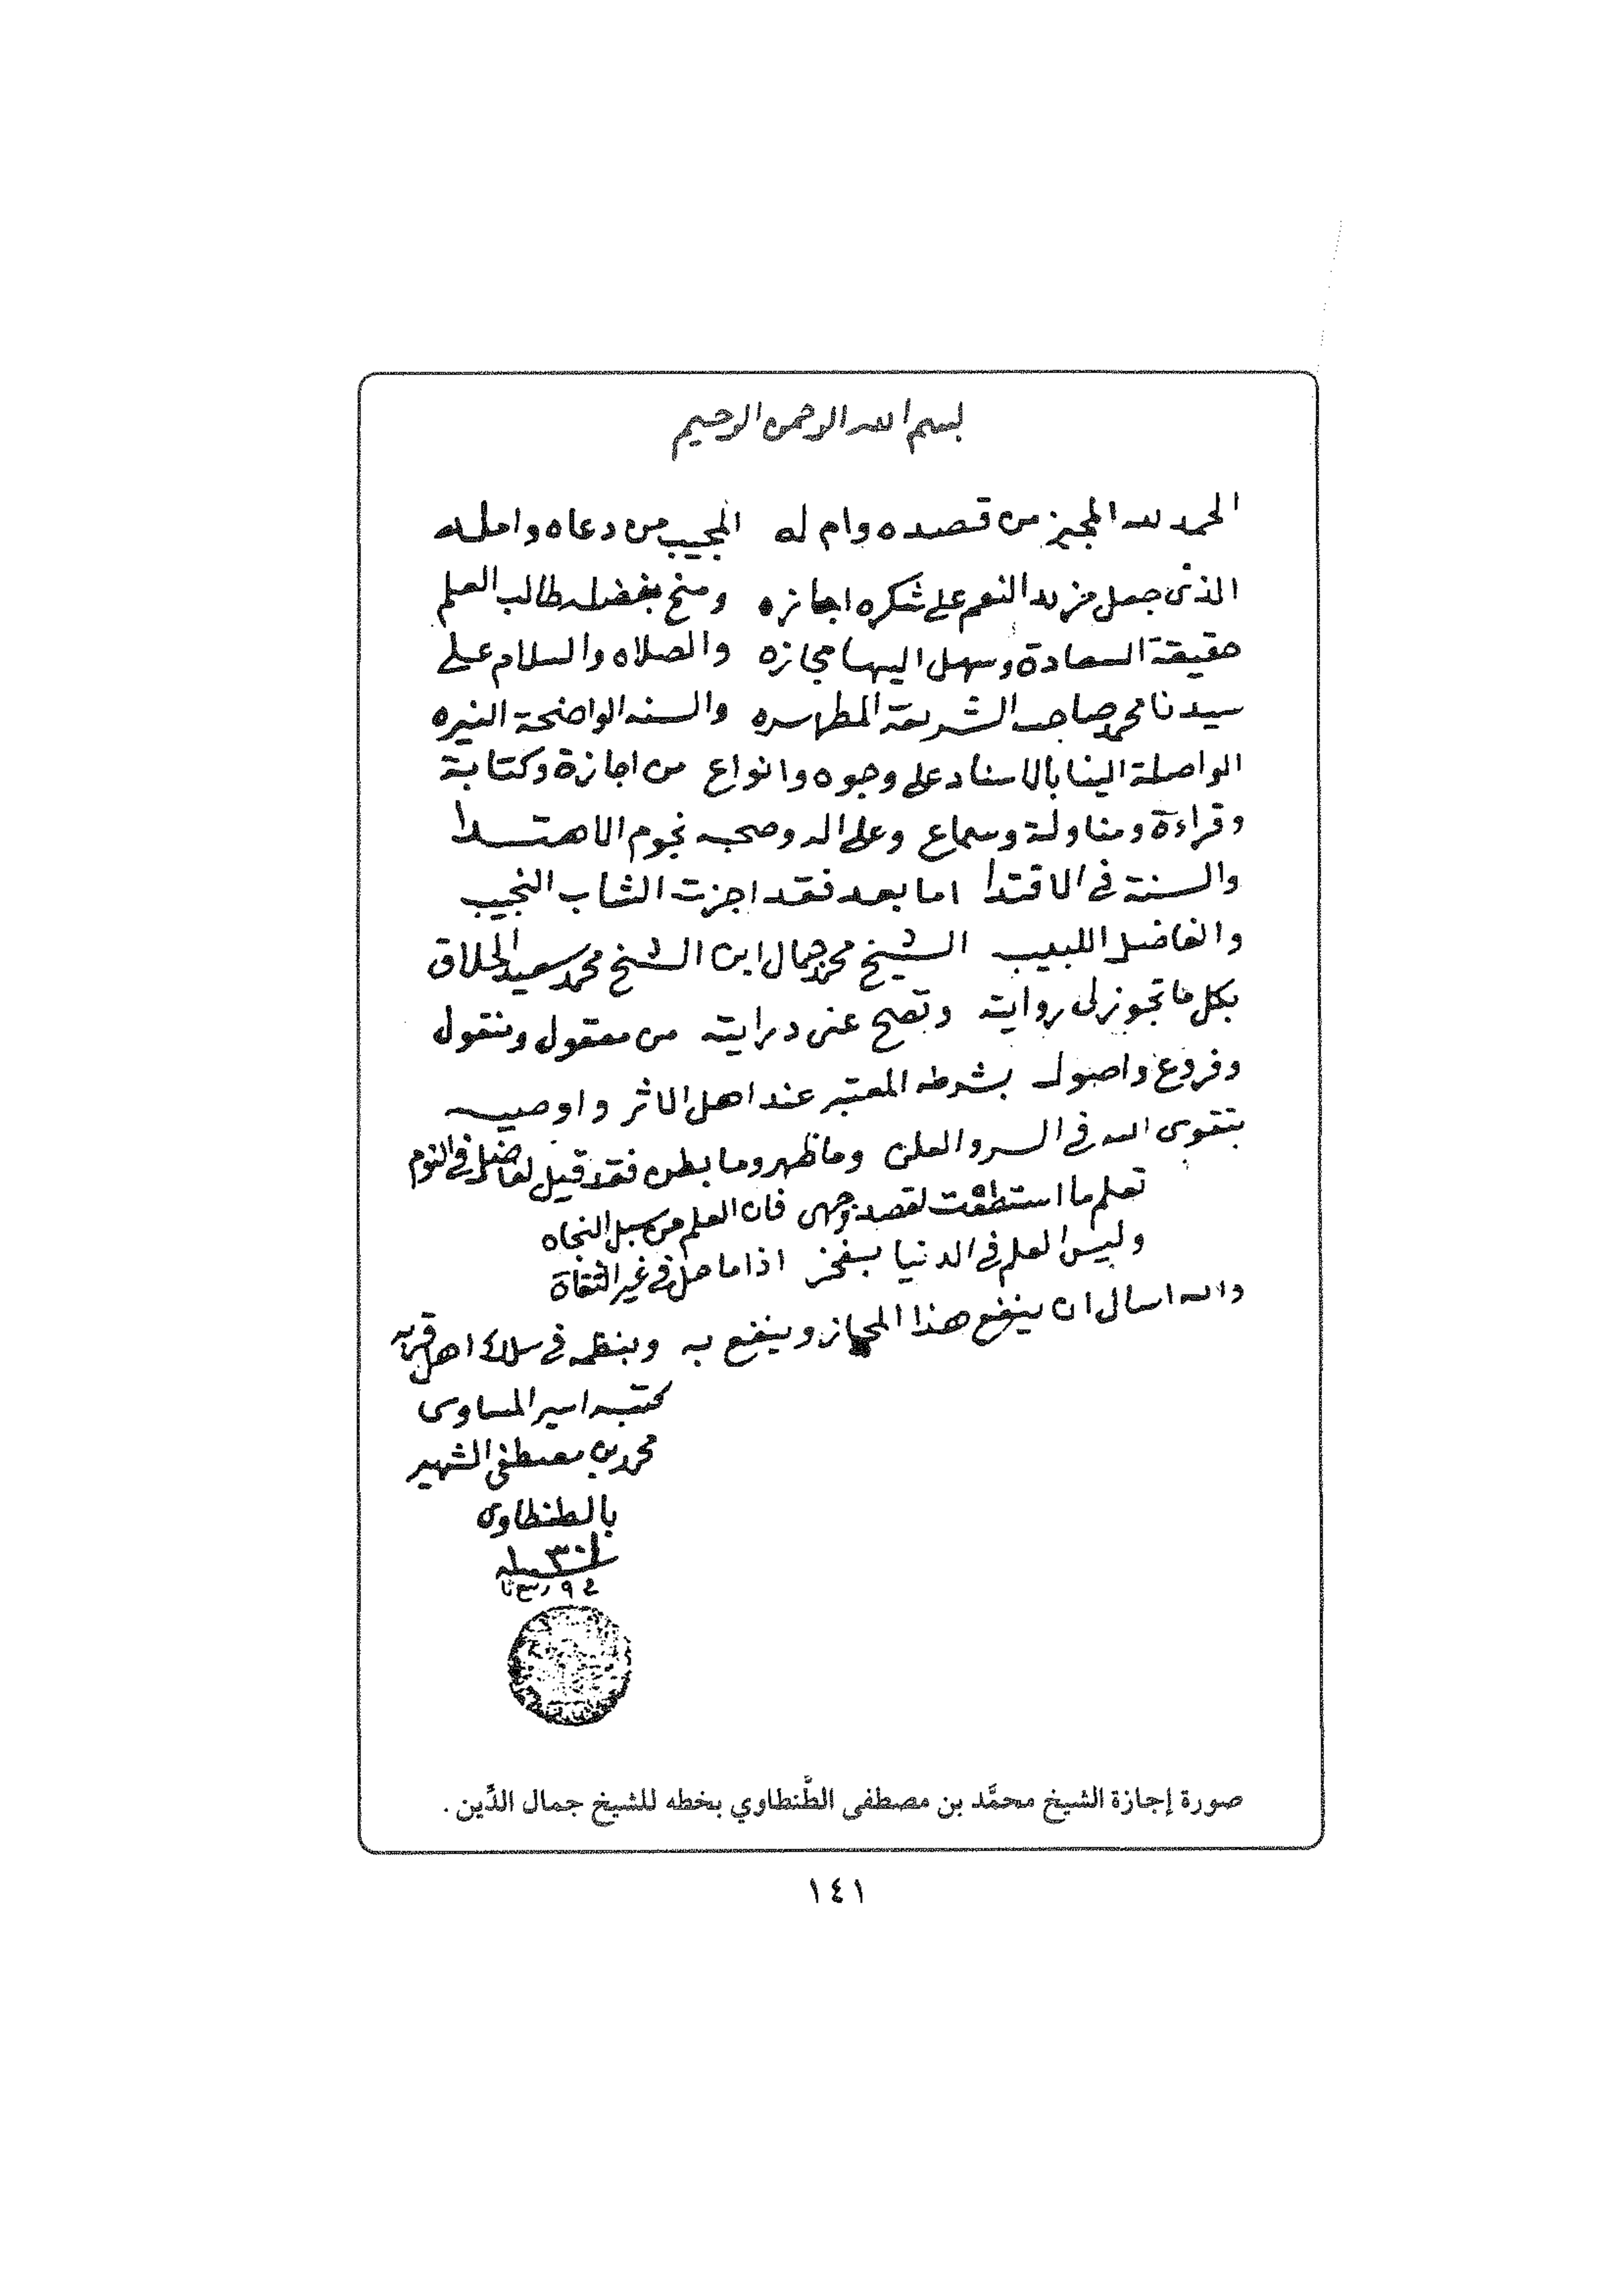 بسم الله الرحمن الرحيم
الحمد لله المجيز من قصده وام له المجيب من دعاه وامله
الذى جعل مزيد النعم على شكره اجازه ومنح بفضله طالب العلم
حقيقة السعادة وسهل اليها مجازه والصلاه والسلام على
سيدنا محمد صاحب الشريعة المطهره والسنه الواضحة النيره
الواصلة الينا بالاسناد على وجوه وانواع من اجازة وكتابة
وقراءة ومناولة وسماع وعلى اله وصحبه نجوم الاهتدا
والسنة فى الاقتدا اما بعد فقد اجزت الشاب النجيب
والفاضل اللبيب الشيخ محمد جمال ابن الشيخ محمد سعيد الحلاق
بكل ما تجوز لى روايته وتصح عنى درايته من معقول ومنقول
وفروع واصول بشرطه المعتبر عند اهل الاثر واوصيه
بتقوى الله فى السر والعلن وما ظهر وما بطن فقد قيل لفاضل فى النوم
تعلم ما استطعت لقصد وجهى فان العلم من سبل النجاه
وليس العلم فى الدنيا بفخر اذا ما حل فى غير الثقاة
والله اسال ان ينفع هذا المجاز وينفع به وينظمه فى سلك اهل قربه
كتبه اسير المساوى
محمد بن مصطفى الشهير
بالطنطاوى
فى ٩ ربيع
صورة إجازة الشيخ محمَّد بن مصطفى الطَّنطاوي بخطه للشيخ جمال الدِّين .
١٤١